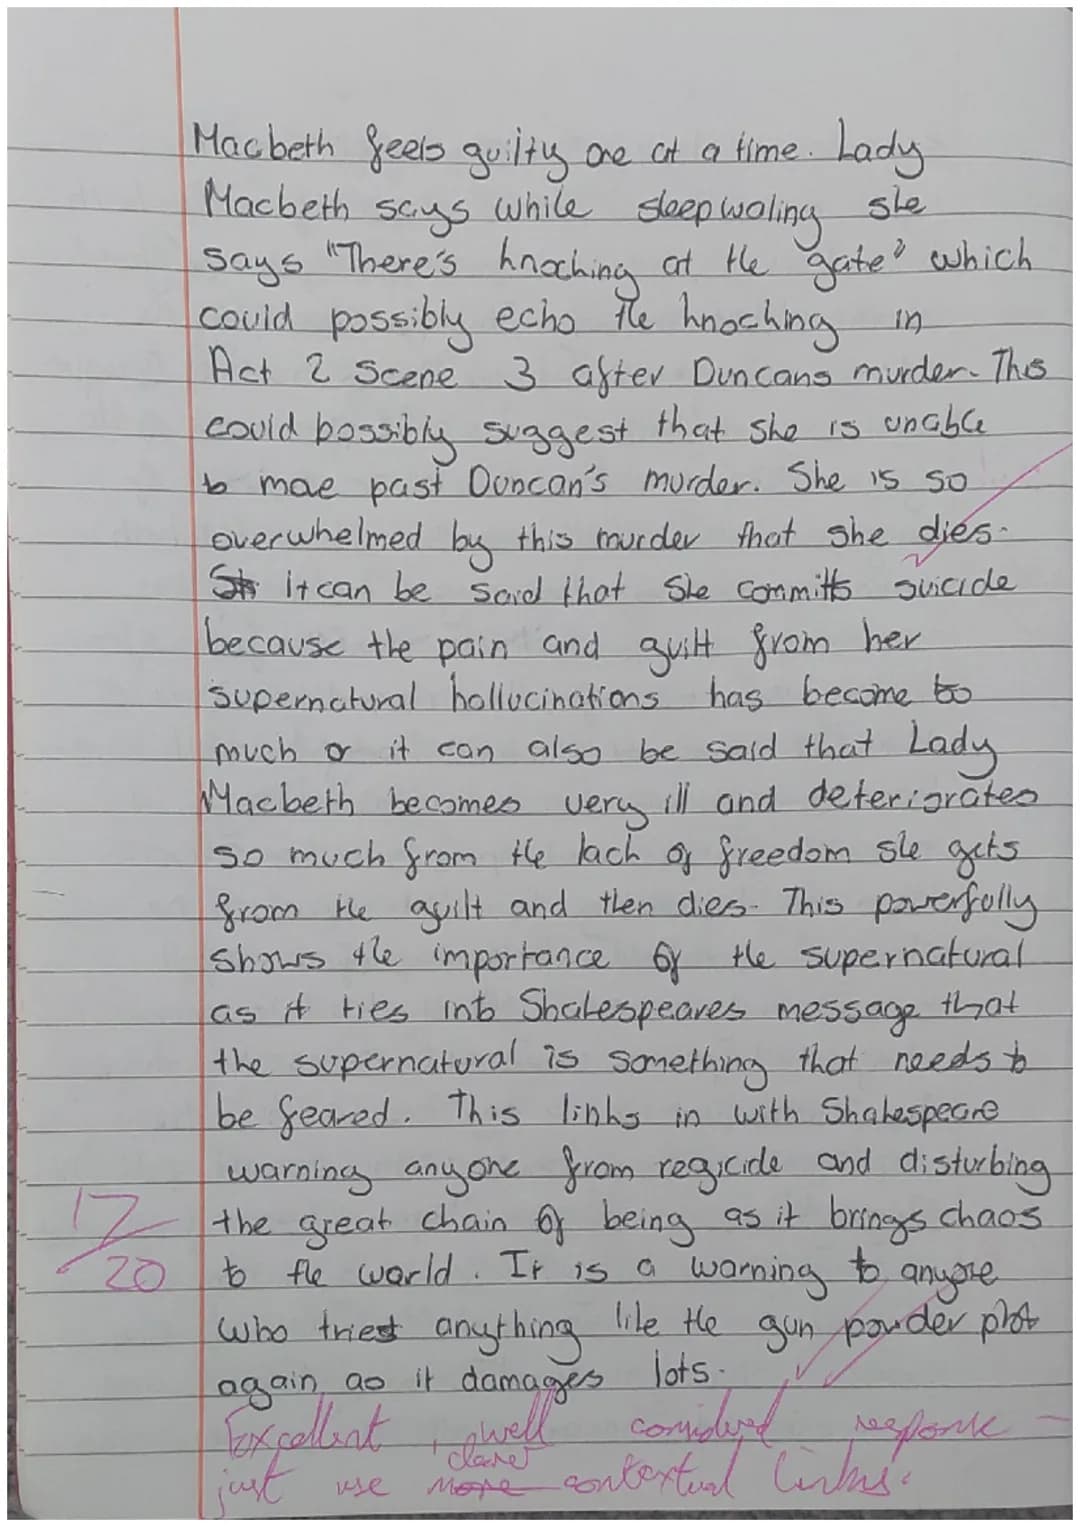 Macbeth feels guilty one at a time. Lady
Macbeth says while sleepwaling she
says "There's knocking at the gate" which
could possibly echo the knocking in
Act 2 Scene 3 after Duncans murder. This
could possibly suggest that she is unable
to move past Duncan's murder. She is so
overwhelmed by this murder that she dies.
it can be said that she committs suicide
because the pain and guilt from her
supernatural hallucinations has become to
much or it can also be said that Lady
Macbeth becomes very ill and deteriorates
so much from the lack of freedom she gets
from the guilt and then dies. This powerfully
shows the importance of the supernatural
as it ties into Shakespeares message that
the supernatural is something that needs to
be feared. This links in with Shakespeare
warning anyone from regicide and disturbing
the great chain of being as it brings chaos
17/20
to the world. It is a warning to anyone
who tries anything like the gun powder plot
again as it damages lots.
Excellent, well considered response -
just use more clearer contextual links.